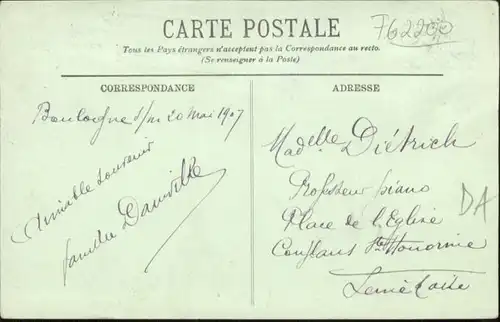 CARTE POSTALE
Tous les Pays étrangers n'acceptent pas la Correspondance au recto.
(Se renseigner à la Poste)
CORRESPONDANCE
ADRESSE
Boulogne s/m 20 Mai 1907
Aimable souvenir
famille Dauville
Madelle Diétrich
Professeur piano
Place de l'Eglise
Conflans Ste Honorine
Seine et Oise
DA